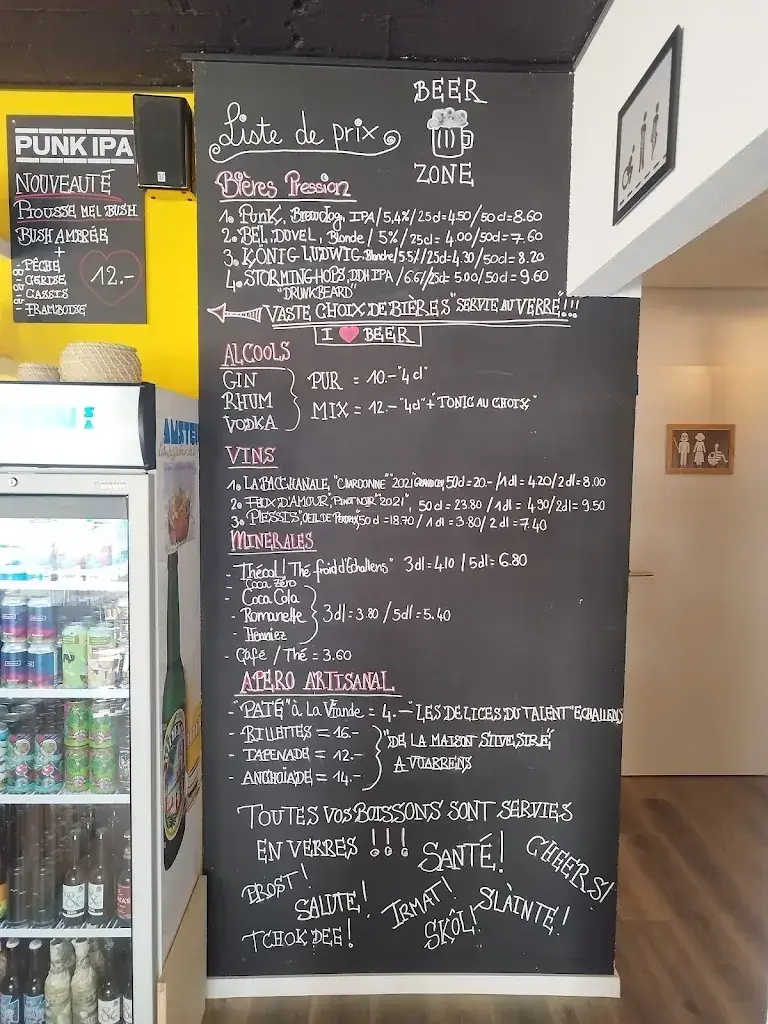 PUNK IPA
NOUVEAUTÉ
MOUSSE MEL BUSH
BUSH AMBRÉE
+
- PÊCHE
- CERISE
- CASSIS
- FRAMBOISE
12.-
Liste de prix
BEER
ZONE
Bières Pression
1. PUNK, Brewdog, IPA / 5,4% / 25cl = 4.50 / 50cl = 8.60
2. BEL, DUVEL, Blonde / 5% / 25cl = 4.00 / 50cl = 7.60
3. KÖNIG LUDWIG Blanche / 5.5% / 25cl = 4.30 / 50cl = 8.20
4. STORMING HOPS, DDH IPA / 6.6% / 25cl = 5.00 / 50cl = 9.60
"DRUNKBEARD"
VASTE CHOIX DE BIÈRES "SERVIE AU VERRE"!!!
I ♥ BEER
ALCOOLS
GIN
RHUM
VODKA
PUR = 10.- "4cl"
MIX = 12.- "4cl" + "TONIC AU CHOIX"
VINS
1. LA BACCHANALE, "CHARDONNE" "2021" GRAND CRU, 50cl = 20.- / 1dl = 4.20 / 2dl = 8.00
2. FEUX D'AMOUR, "PINOT NOIR" "2021", 50cl = 23.80 / 1dl = 4.90 / 2dl = 9.50
3. PLESSIS, "OEIL DE PERDRIX" 50cl = 18.70 / 1dl = 3.80 / 2dl = 7.40
MINERALES
- Thécol! Thé froid d'Échallens" 3dl = 4.10 / 5dl = 6.80
- Coca Zéro
- Coca Cola
- Romanette
- Henniez
3dl = 3.80 / 5dl = 5.40
- Café / Thé = 3.60
APÉRO ARTISANAL
- "PATÉ" à La Viande = 4.- "LES DELICES DU TALENT" ECHALLENS
- RILLETTES = 16.-
- TAPENADE = 12.-
- ANCHOIADE = 14.-
"DE LA MAISON SILVESTRE
A VUARRENS
TOUTES VOS BOISSONS SONT SERVIES
EN VERRES !!!
SANTÉ!
CHEERS!
PROST!
SALUTE!
IRMAT!
SLÀINTE!
TCHOK DEE!
SKÖL!